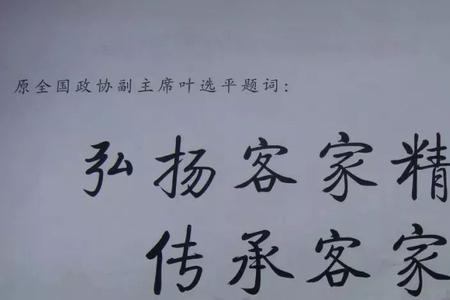 原全国政协副主席叶选平题词:
弘扬客家精
传承客家